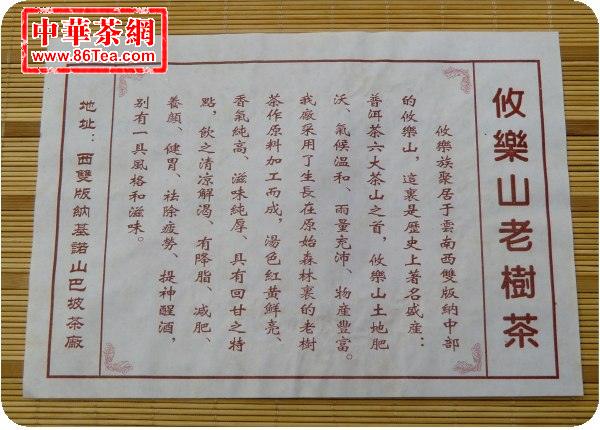 中華茶網
www.86Tea.com
攸樂山老樹茶
攸樂族聚居于雲南西雙版納中部
的攸樂山，這裏是歷史上著名盛産：
普洱茶六大茶山之首，攸樂山土地肥
沃、氣候温和、雨量充沛、物産豐富。
我廠采用了生長在原始森林裏的老樹
茶作原料加工而成，湯色紅黄鮮亮、
香氣純高、滋味純厚、具有回甘之特
點，飲之清凉解渴、有降脂、减肥、
養顔、健胃、祛除疲勞、提神醒酒，
别有一具風格和滋味。
地址：西雙版納基諾山巴坡茶廠